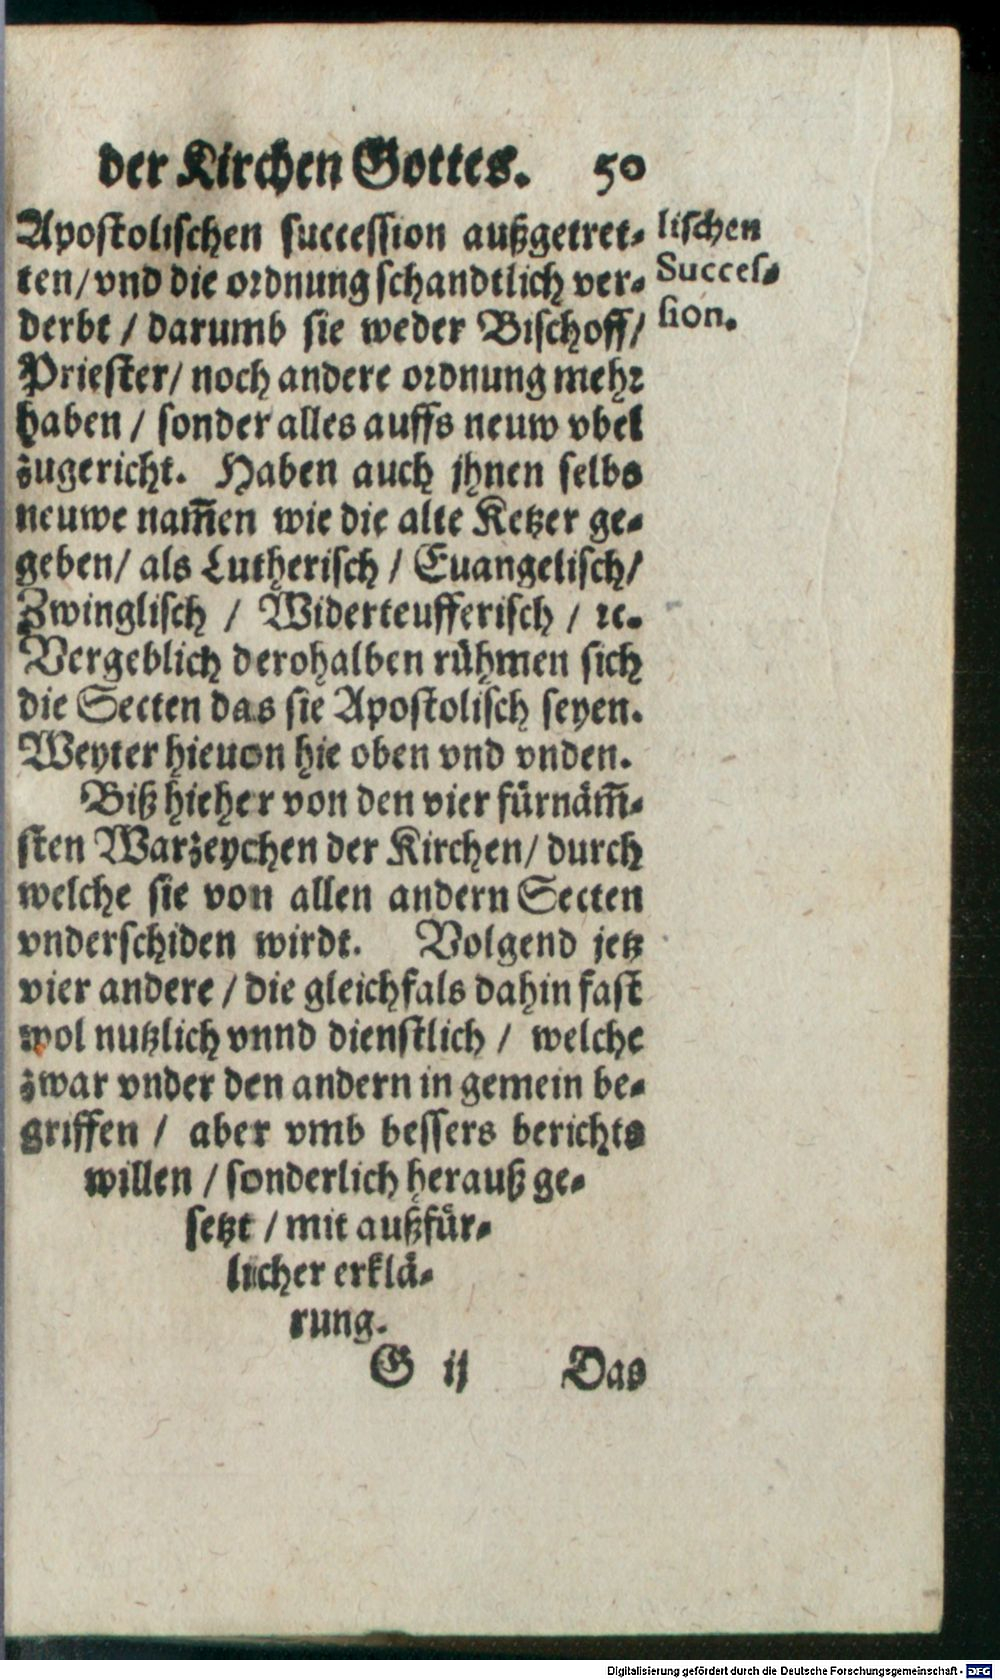 der Kirchen Gottes. 50
Apostolischen succession außgetret-
ten/ vnd die ordnung schandtlich ver-
derbt / darumb sie weder Bischoff/
Priester/ noch andere ordnung mehr
haben / sonder alles auffs neuw vbel
zugericht. Haben auch jhnen selbs
neuwe nam̃en wie die alte Ketzer ge-
geben/ als Lutherisch / Euangelisch/
Zwinglisch / Widerteufferisch / ꝛc.
Vergeblich derohalben rühmen sich
die Secten das sie Apostolisch seyen.
Weyter hieuon hie oben vnd vnden.
Biß hieher von den vier fürnäm̃-
sten Warzeychen der Kirchen/ durch
welche sie von allen andern Secten
vnderschiden wirdt. Volgend jetz
vier andere / die gleichfals dahin fast
wol nutzlich vnnd dienstlich / welche
zwar vnder den andern in gemein be-
griffen / aber vmb bessers berichts
willen / sonderlich herauß ge-
setzt / mit außfür-
licher erklä-
rung.
G ij Das
lischen
Succes-
sion.
Digitalisierung gefördert durch die Deutsche Forschungsgemeinschaft - DFG